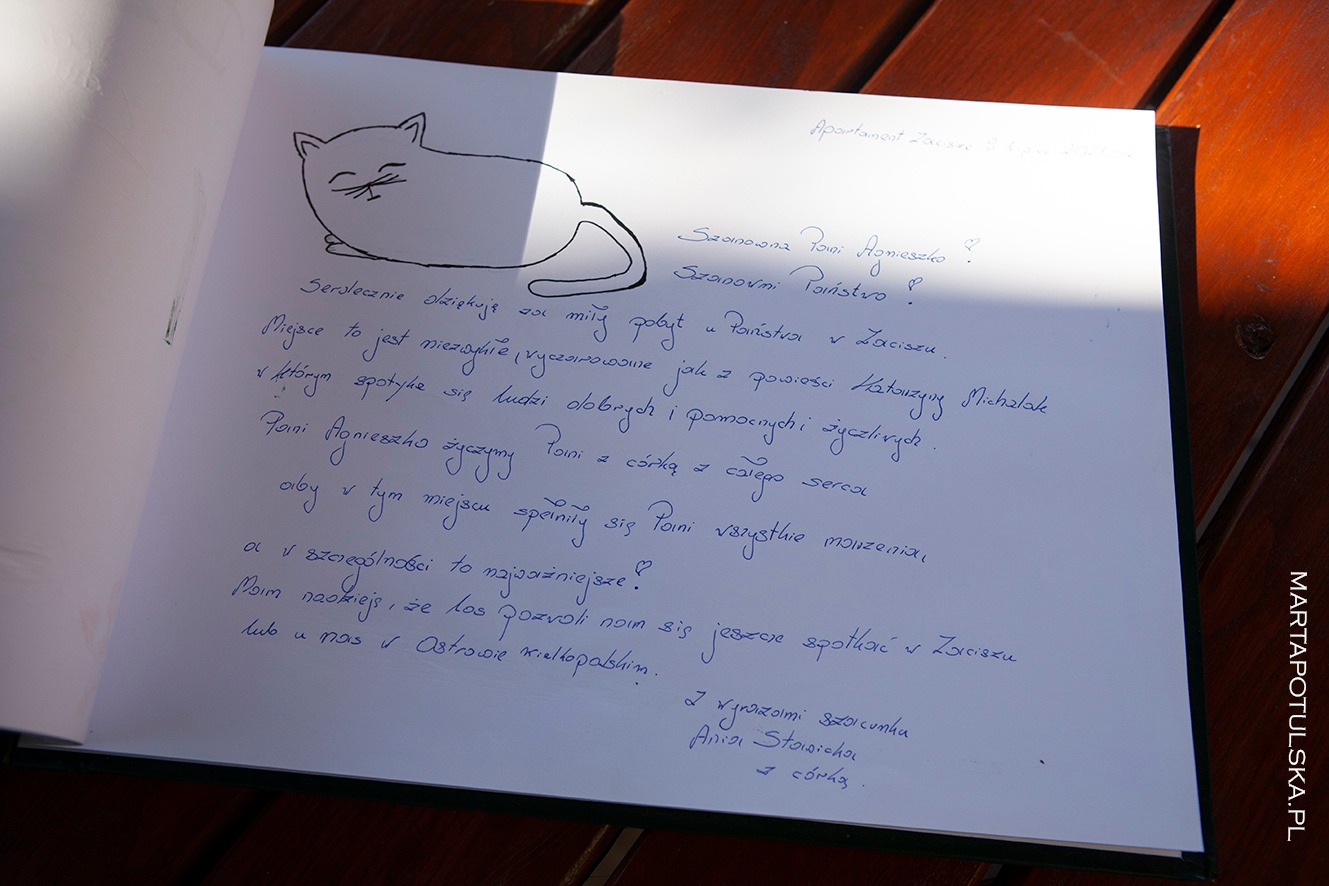 Apartament Zacisze 8 lipca
Szanowna Pani Agnieszko !
Szanowni Państwo !
Serdecznie dziękuję za miły pobyt u Państwa w Zaciszu.
Miejsce to jest niezwykłe, wyczarowane jak z powieści Katarzyny Michalak
w którym spotyka się ludzi dobrych i pomocnych i życzliwych.
Pani Agnieszko życzymy Pani z córką z całego serca
aby w tym miejscu spełniły się Pani wszystkie marzenia,
a w szczególności to najważniejsze !
Mam nadzieję, że los pozwoli nam się jeszcze spotkać w Zaciszu
lub u nas w Ostrowie Wielkopolskim.
Z wyrazami szacunku
Ania Stawicka
z córką.
MARTAPOTULSKA.PL